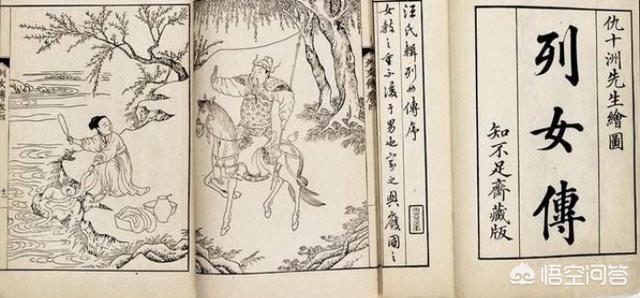 仇十洲先生繪圖
列女傳
知不足齋藏版
汪氏輯列女傳序
女教之重不後于男也家之興廢國之
列女傳卷
悟空问答